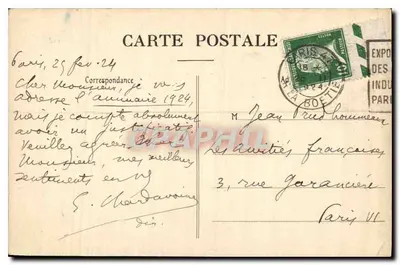 CARTE POSTALE
Correspondance
Paris, 25 fev. 24
Cher Monsieur, je vous
adresse l'annuaire 1924,
mais je compte absolument
avoir un justificatif
Veuillez agréer
Monsieur, mes meilleurs
sentiments
PARIS
R. LA BOETIE
EXPO
DES
INDU
PARI
M Jean
Les Amitiés françaises
3, rue Garancière
Paris VI